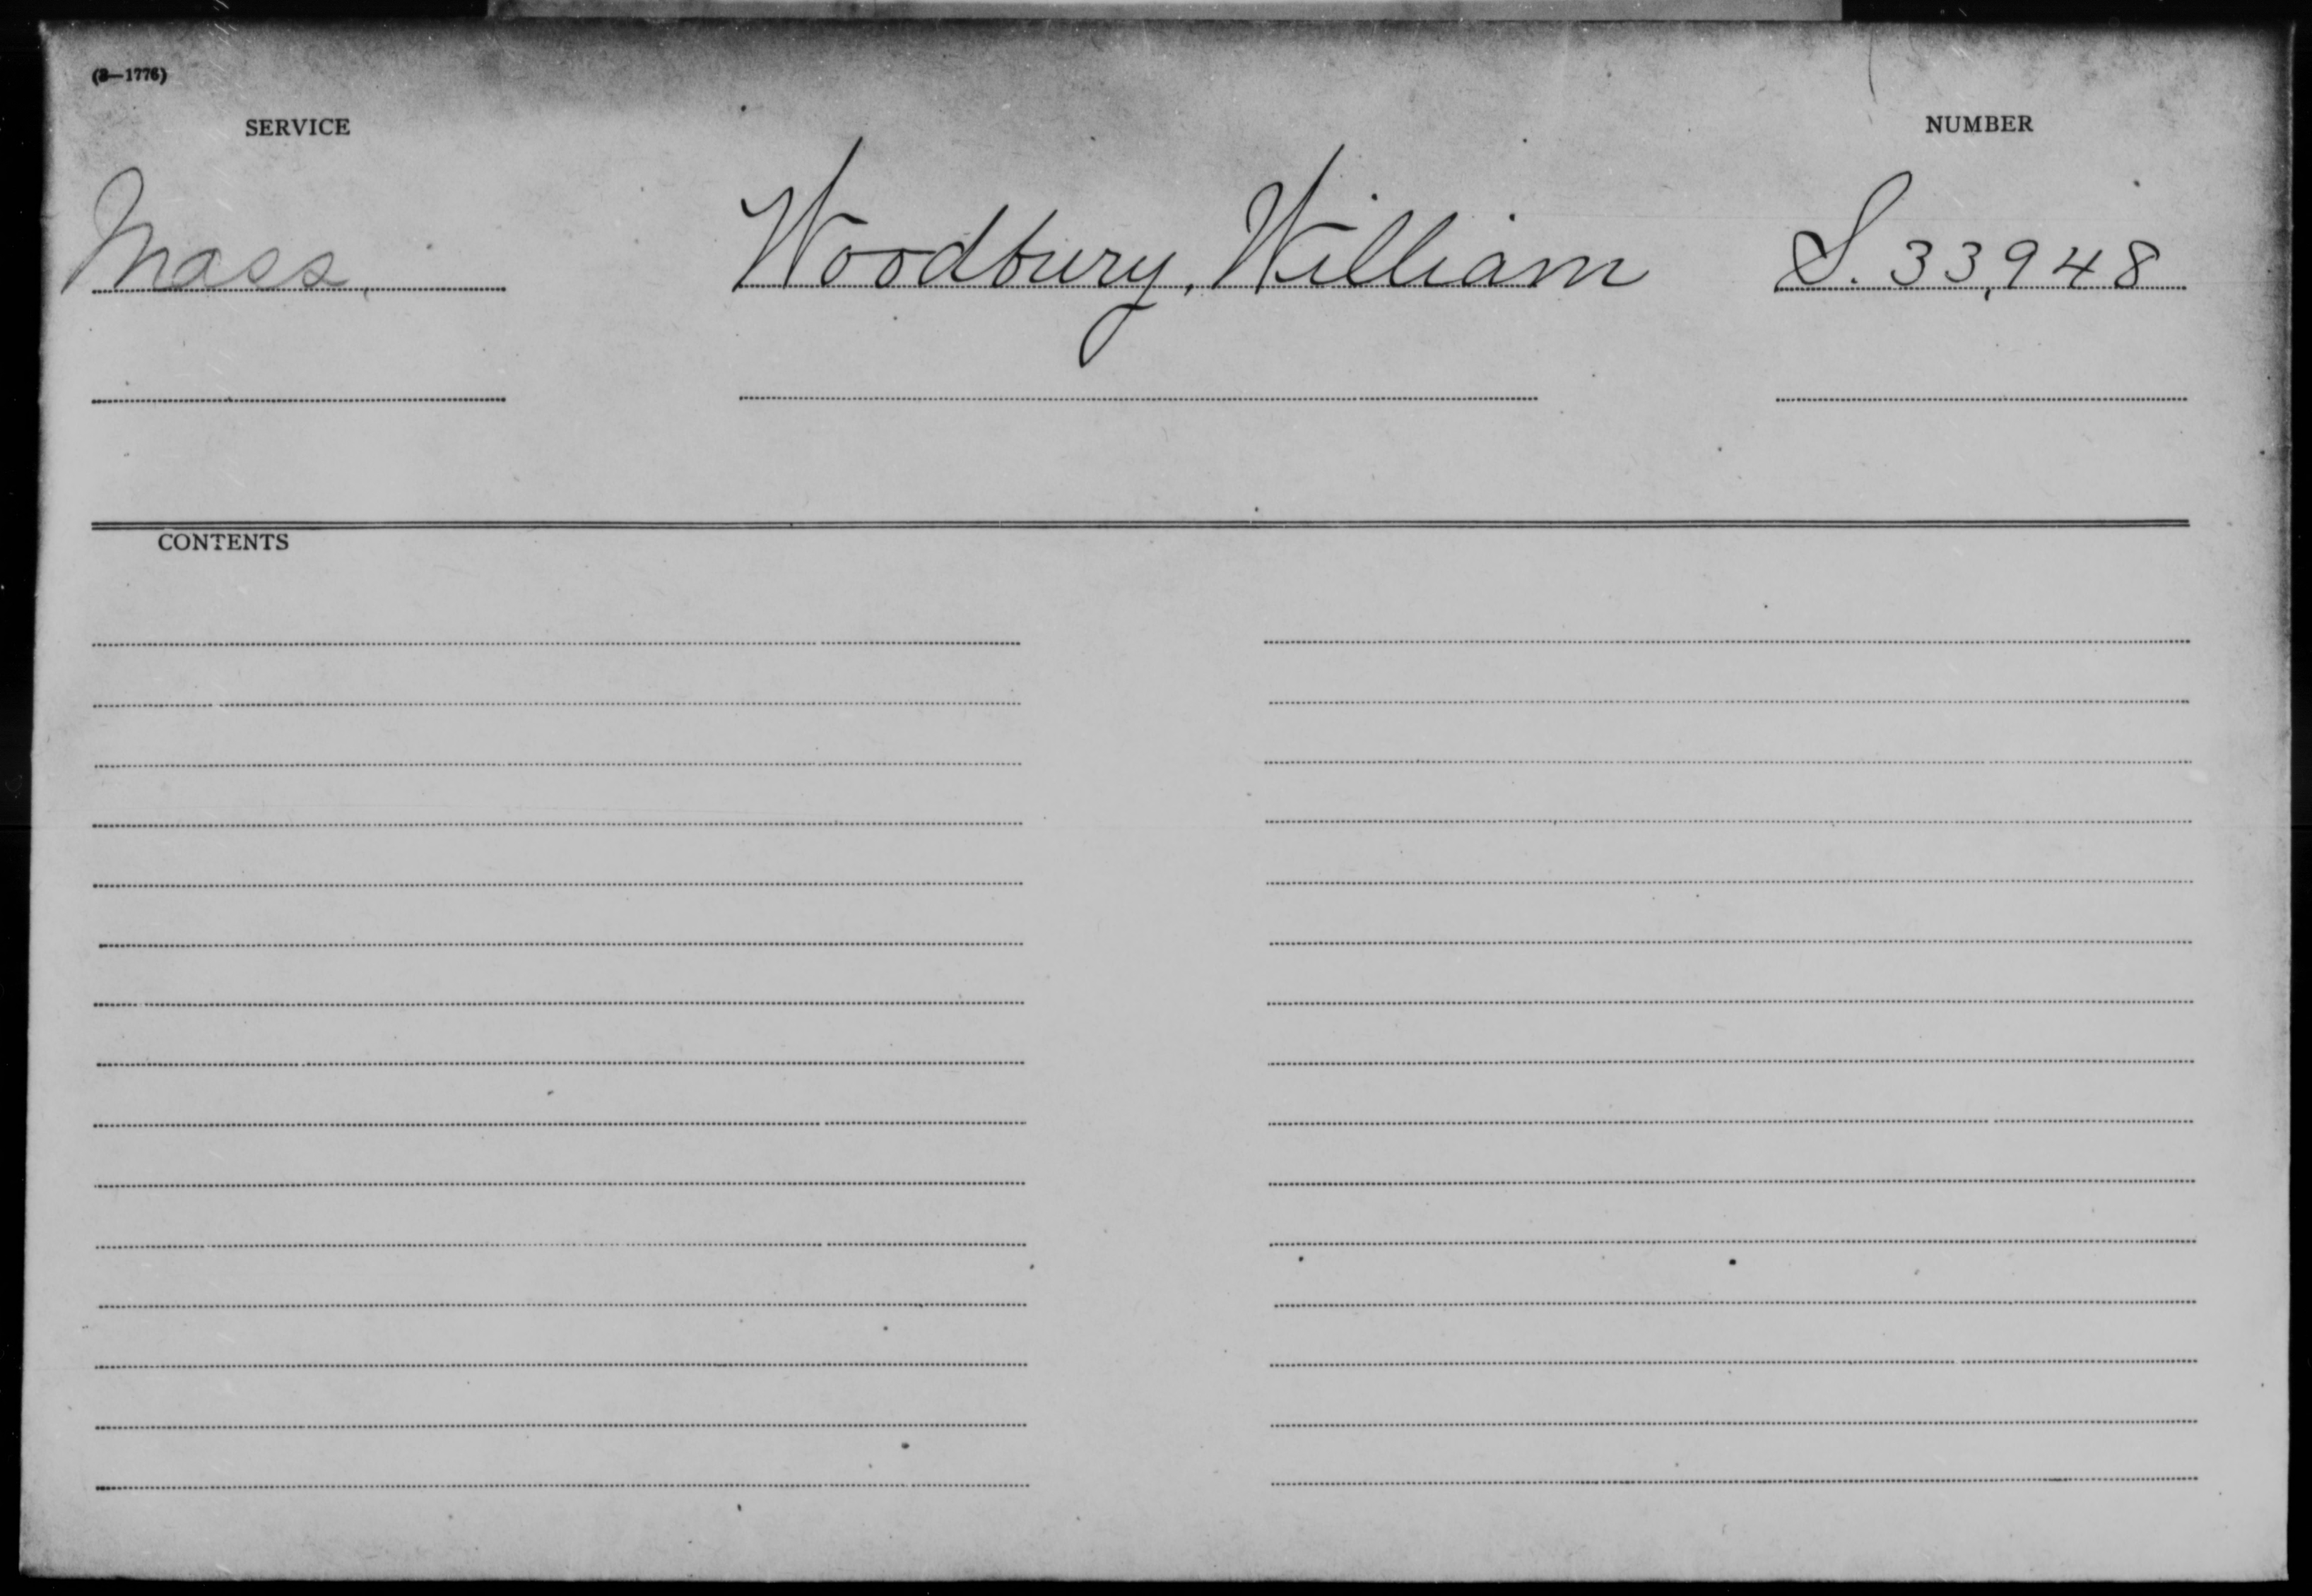 (3—1776)
SERVICE
NUMBER
Mass.
Woodbury, William
S. 33,948
CONTENTS